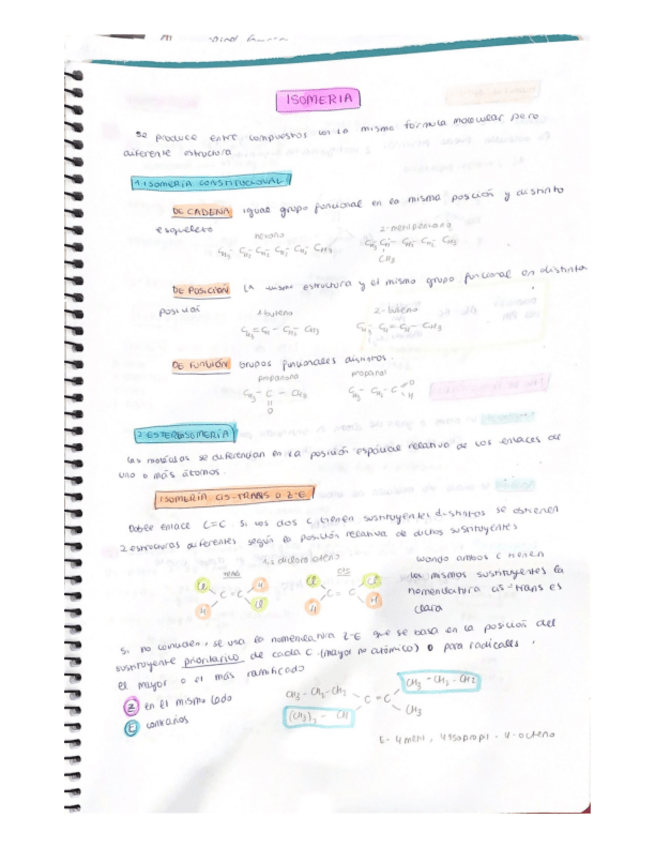 ISOMERIA
Se produce entre compuestos con la misma formula molecular pero
diferente estructura
1. ISOMERÍA CONSTITUCIONAL
DE CADENA igual grupo funcional en la misma posición y distinto
esqueleto
hexano
CH3 - CH2 - CH2 - CH2 - CH2 - CH3
CH3 CH - CH2 - CH2 - CH3
CH3
DE POSICION La misma estructura y el mismo grupo funcional en distinta
posición
1-buteno 2-buteno
CH2 = CH - CH2 - CH3 CH3 - CH = CH - CH3
DE FUNCIÓN Grupos funcionales distintos.
propanona propanal
CH3 - C - CH3 CH3 - CH2 - C O
O H
2. ESTEREOISOMERÍA
Las moléculas se diferencian en la posición espacial relativa de los enlaces de
uno o más átomos.
ISOMERÍA CIS-TRANS O Z-E
Doble enlace C=C. Si los dos C tienen sustituyentes distintos se obtienen
2 estructuras diferentes según la posición relativa de dichos sustituyentes
1,2 dicloro eteno
trans cis
Cl H Cl Cl
C = C C = C
H Cl H H
Cuando ambos C tienen
los mismos sustituyentes la
nomenclatura cis-trans es
clara
Si no coinciden, se usa la nomenclatura Z-E que se basa en la posición del
sustituyente prioritario de cada C (mayor no atómico) o para radicales,
el mayor o el más ramificado
Z en el mismo lado
E contrarios
CH3 - CH2 - CH2 CH3 - CH2 - CH2
C = C
(CH3)2 - CH CH3
E-4 metil, 4 isopropil - 4-octeno